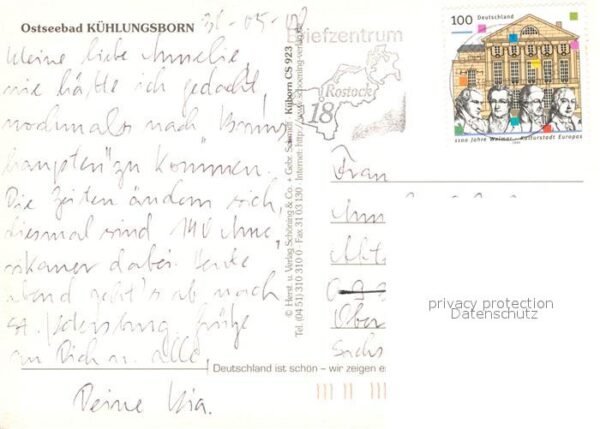 Ostseebad KÜHLUNGSBORN
31-05-
Meine liebe Annelie,
nie hätte ich gedacht,
nochmals nach "Bruns
haupten" zu kommen.
Die Zeiten ändern sich,
diesmal sind 140 Ame,
rikaner dabei. Heute
abend geht's ab nach
St. Petersburg. Grüße
an Dich u. alle,
Deine
© Herst. u. Verlag Schöning & Co. • Gebr. Schmidt
Tel. (04 51) 310 310 0 · Fax 31 03 130
Külborn CS 923
Internet: http://www.schoening-verlag.de
Briefzentrum
Rostock
18
100 Deutschland
1100 Jahre Weimar - Kulturstadt Europas
Frau
Ober
Sachs
privacy protection
Datenschutz
Deutschland ist schön – wir zeigen es